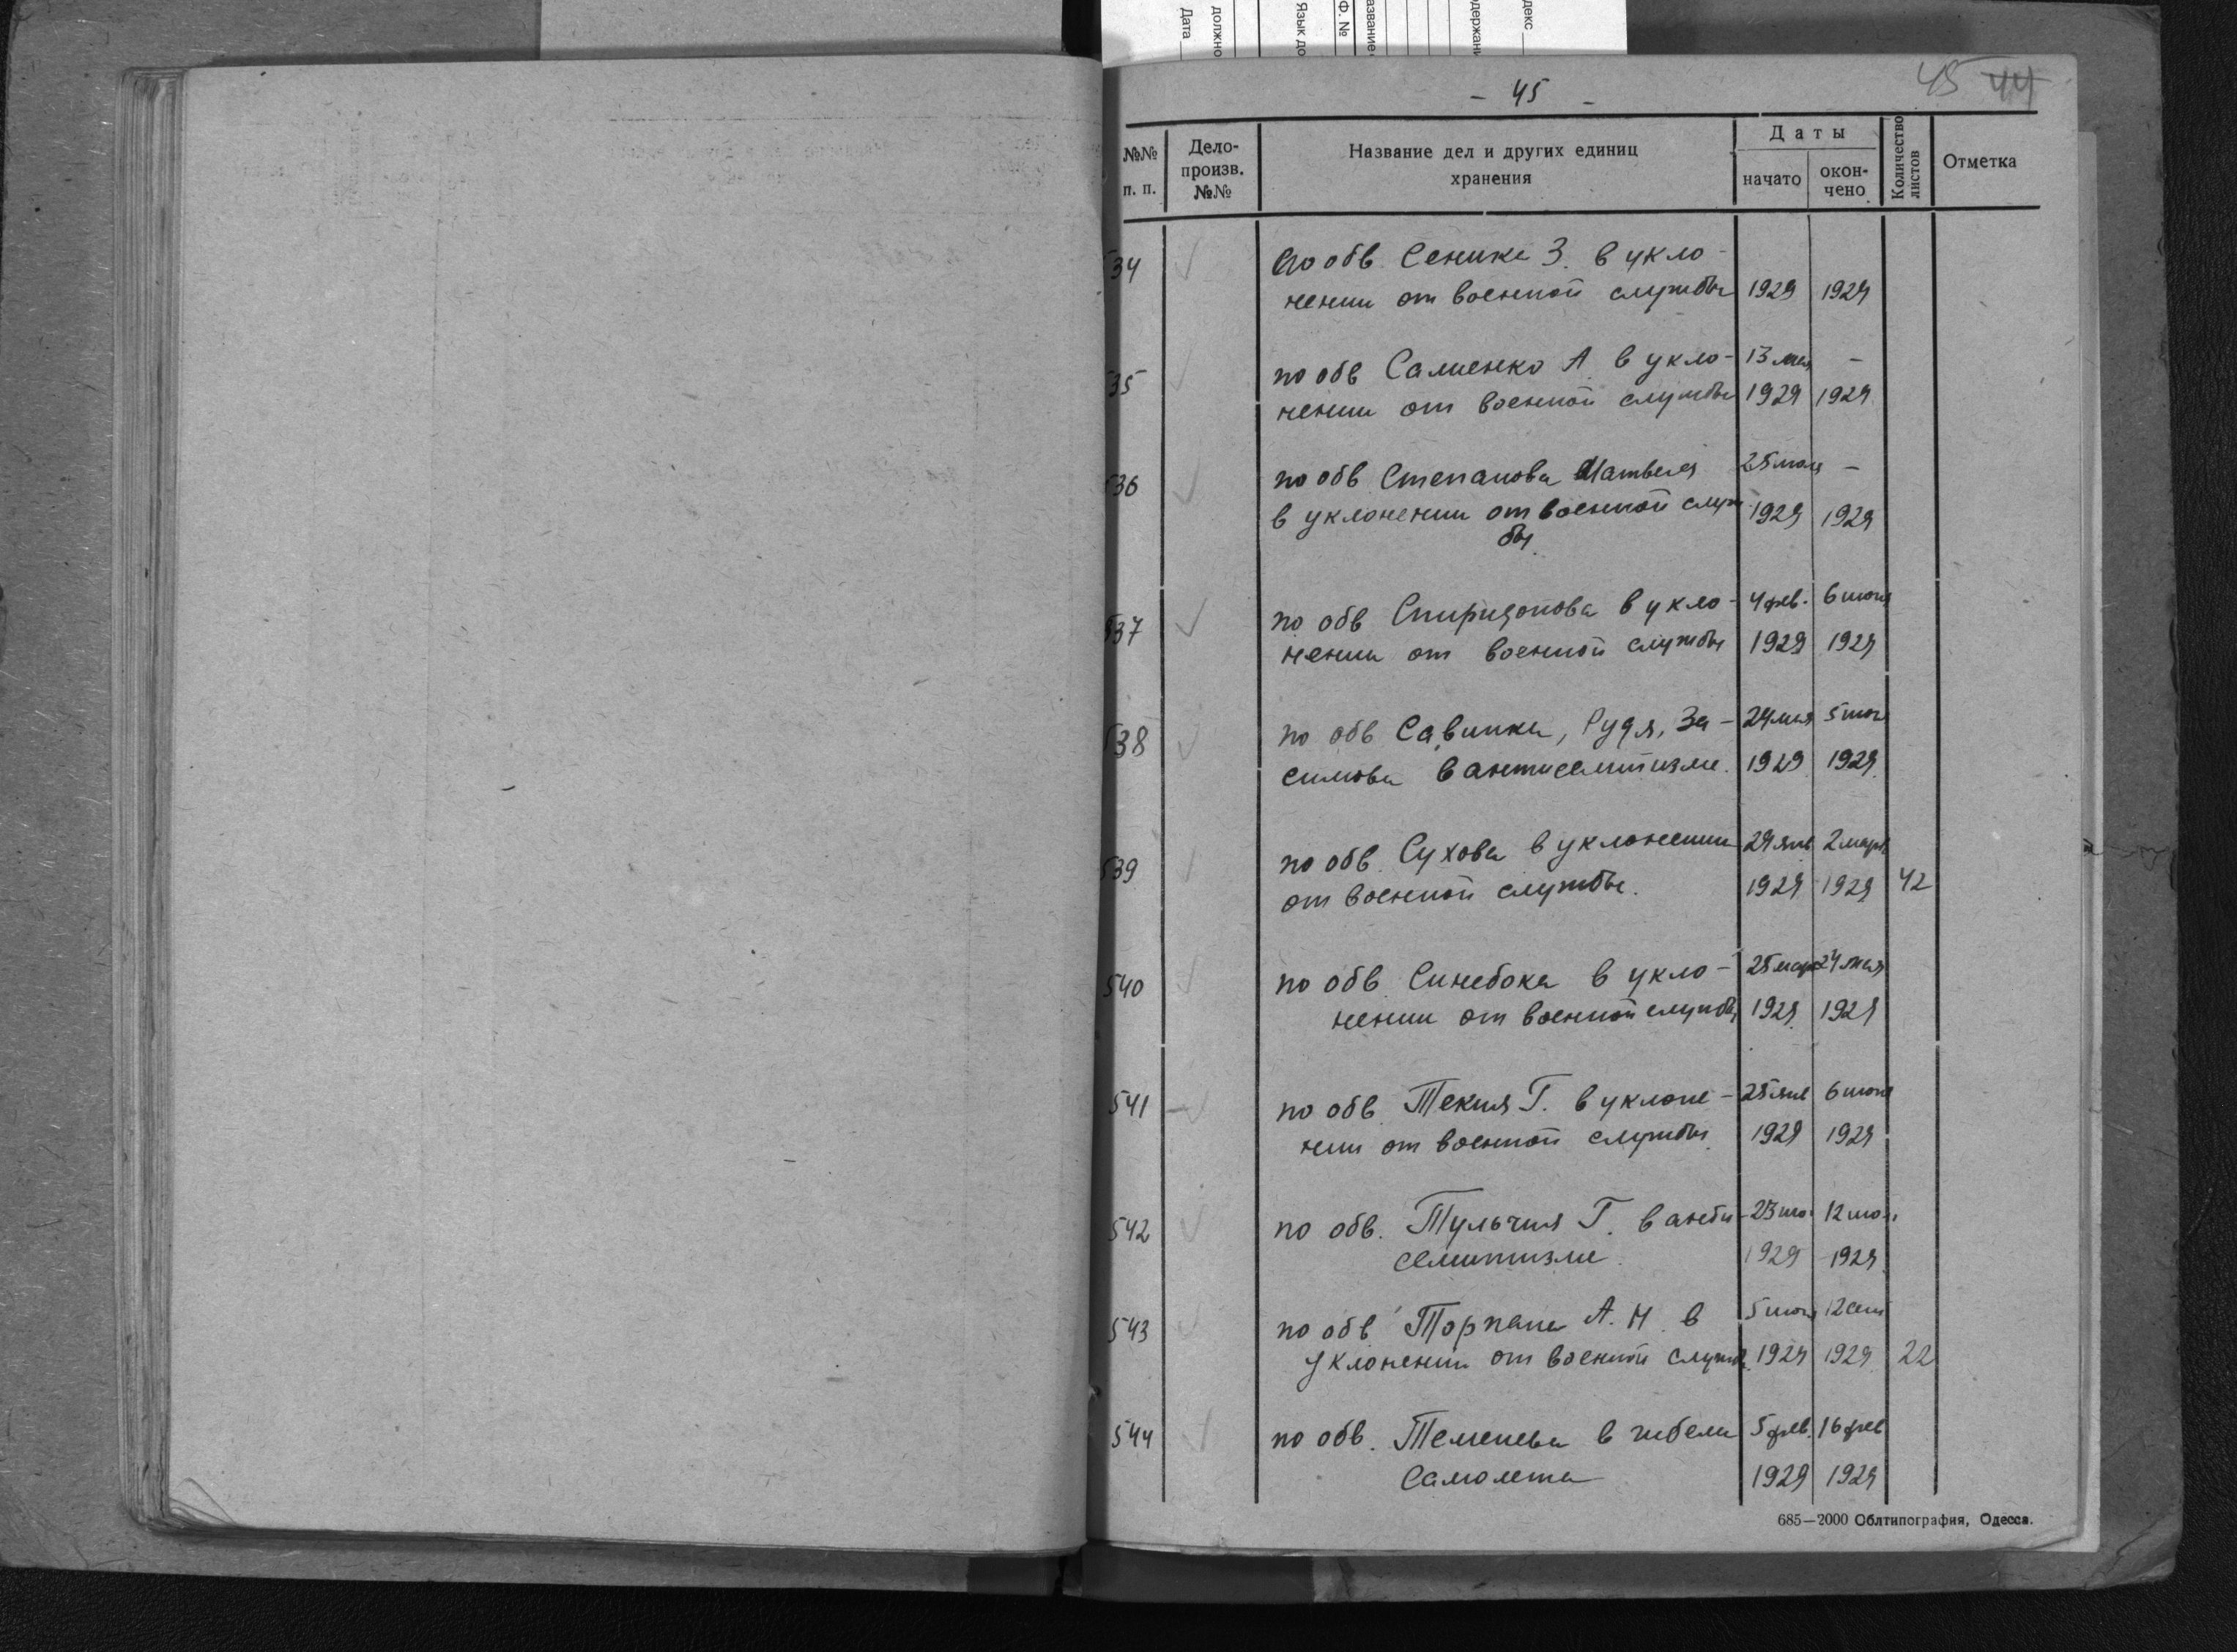 Дата
должно
Язык до
Ф. №
азвание
одержан
декс
- 45 -
45 44
№№ п. п.
Дело-произв. №№
Название дел и других единиц хранения
Даты
начато
окончено
Количество листов
Отметка
534 По обв. Сеника З. в укло-
нении от военной службы 1929 1929
535 по обв Самиенко А. в укло- 13 мая -
нении от военной службы 1929 1929
536 по обв Степанова Матвея 25 мая -
в уклонении от военной служ 1929 1929
бы.
537 по обв Спиридонова в укло- 4 фев. 6 июня
нении от военной службы 1929 1929
538 по обв Савинка, Рудя, За- 24 мая 5 июн
симова в антисемитизме. 1929 1929
539 по обв. Сухова в уклонении 29 янв 2 март
от военной службы. 1929 1929 42
540 по обв. Синебока в укло- 25 мар 24 мая
нении от военной службы 1929 1929
541 по обв. Текия Г. в уклоне- 25 янв 6 июня
нии от военной службы. 1929 1929
542 по обв. Тульчия Г. в анти- 23 12
семитизме. 1929 1929
543 по обв Торпана А. Н. в 5 12 сент
уклонении от военной служб. 1929 1929 22
544 по обв. Теменева в гибели 5 фев. 16 фев
самолета 1929 1929
685—2000 Облтипография, Одесса.